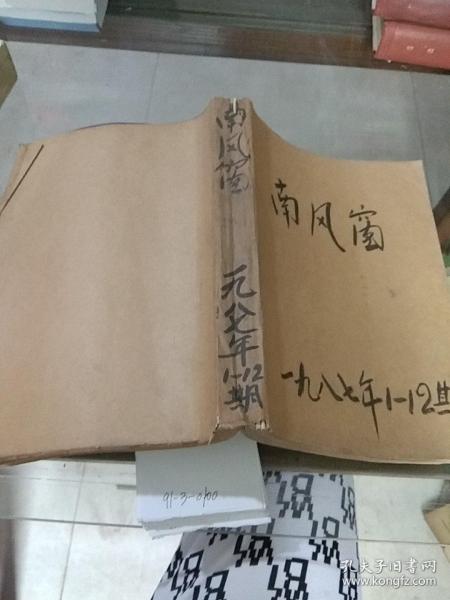 南风窗
一九八七年
1-12
期
南风窗
一九八七年1-12期
91-3-0100
孔夫子旧书网
www.kongfz.com